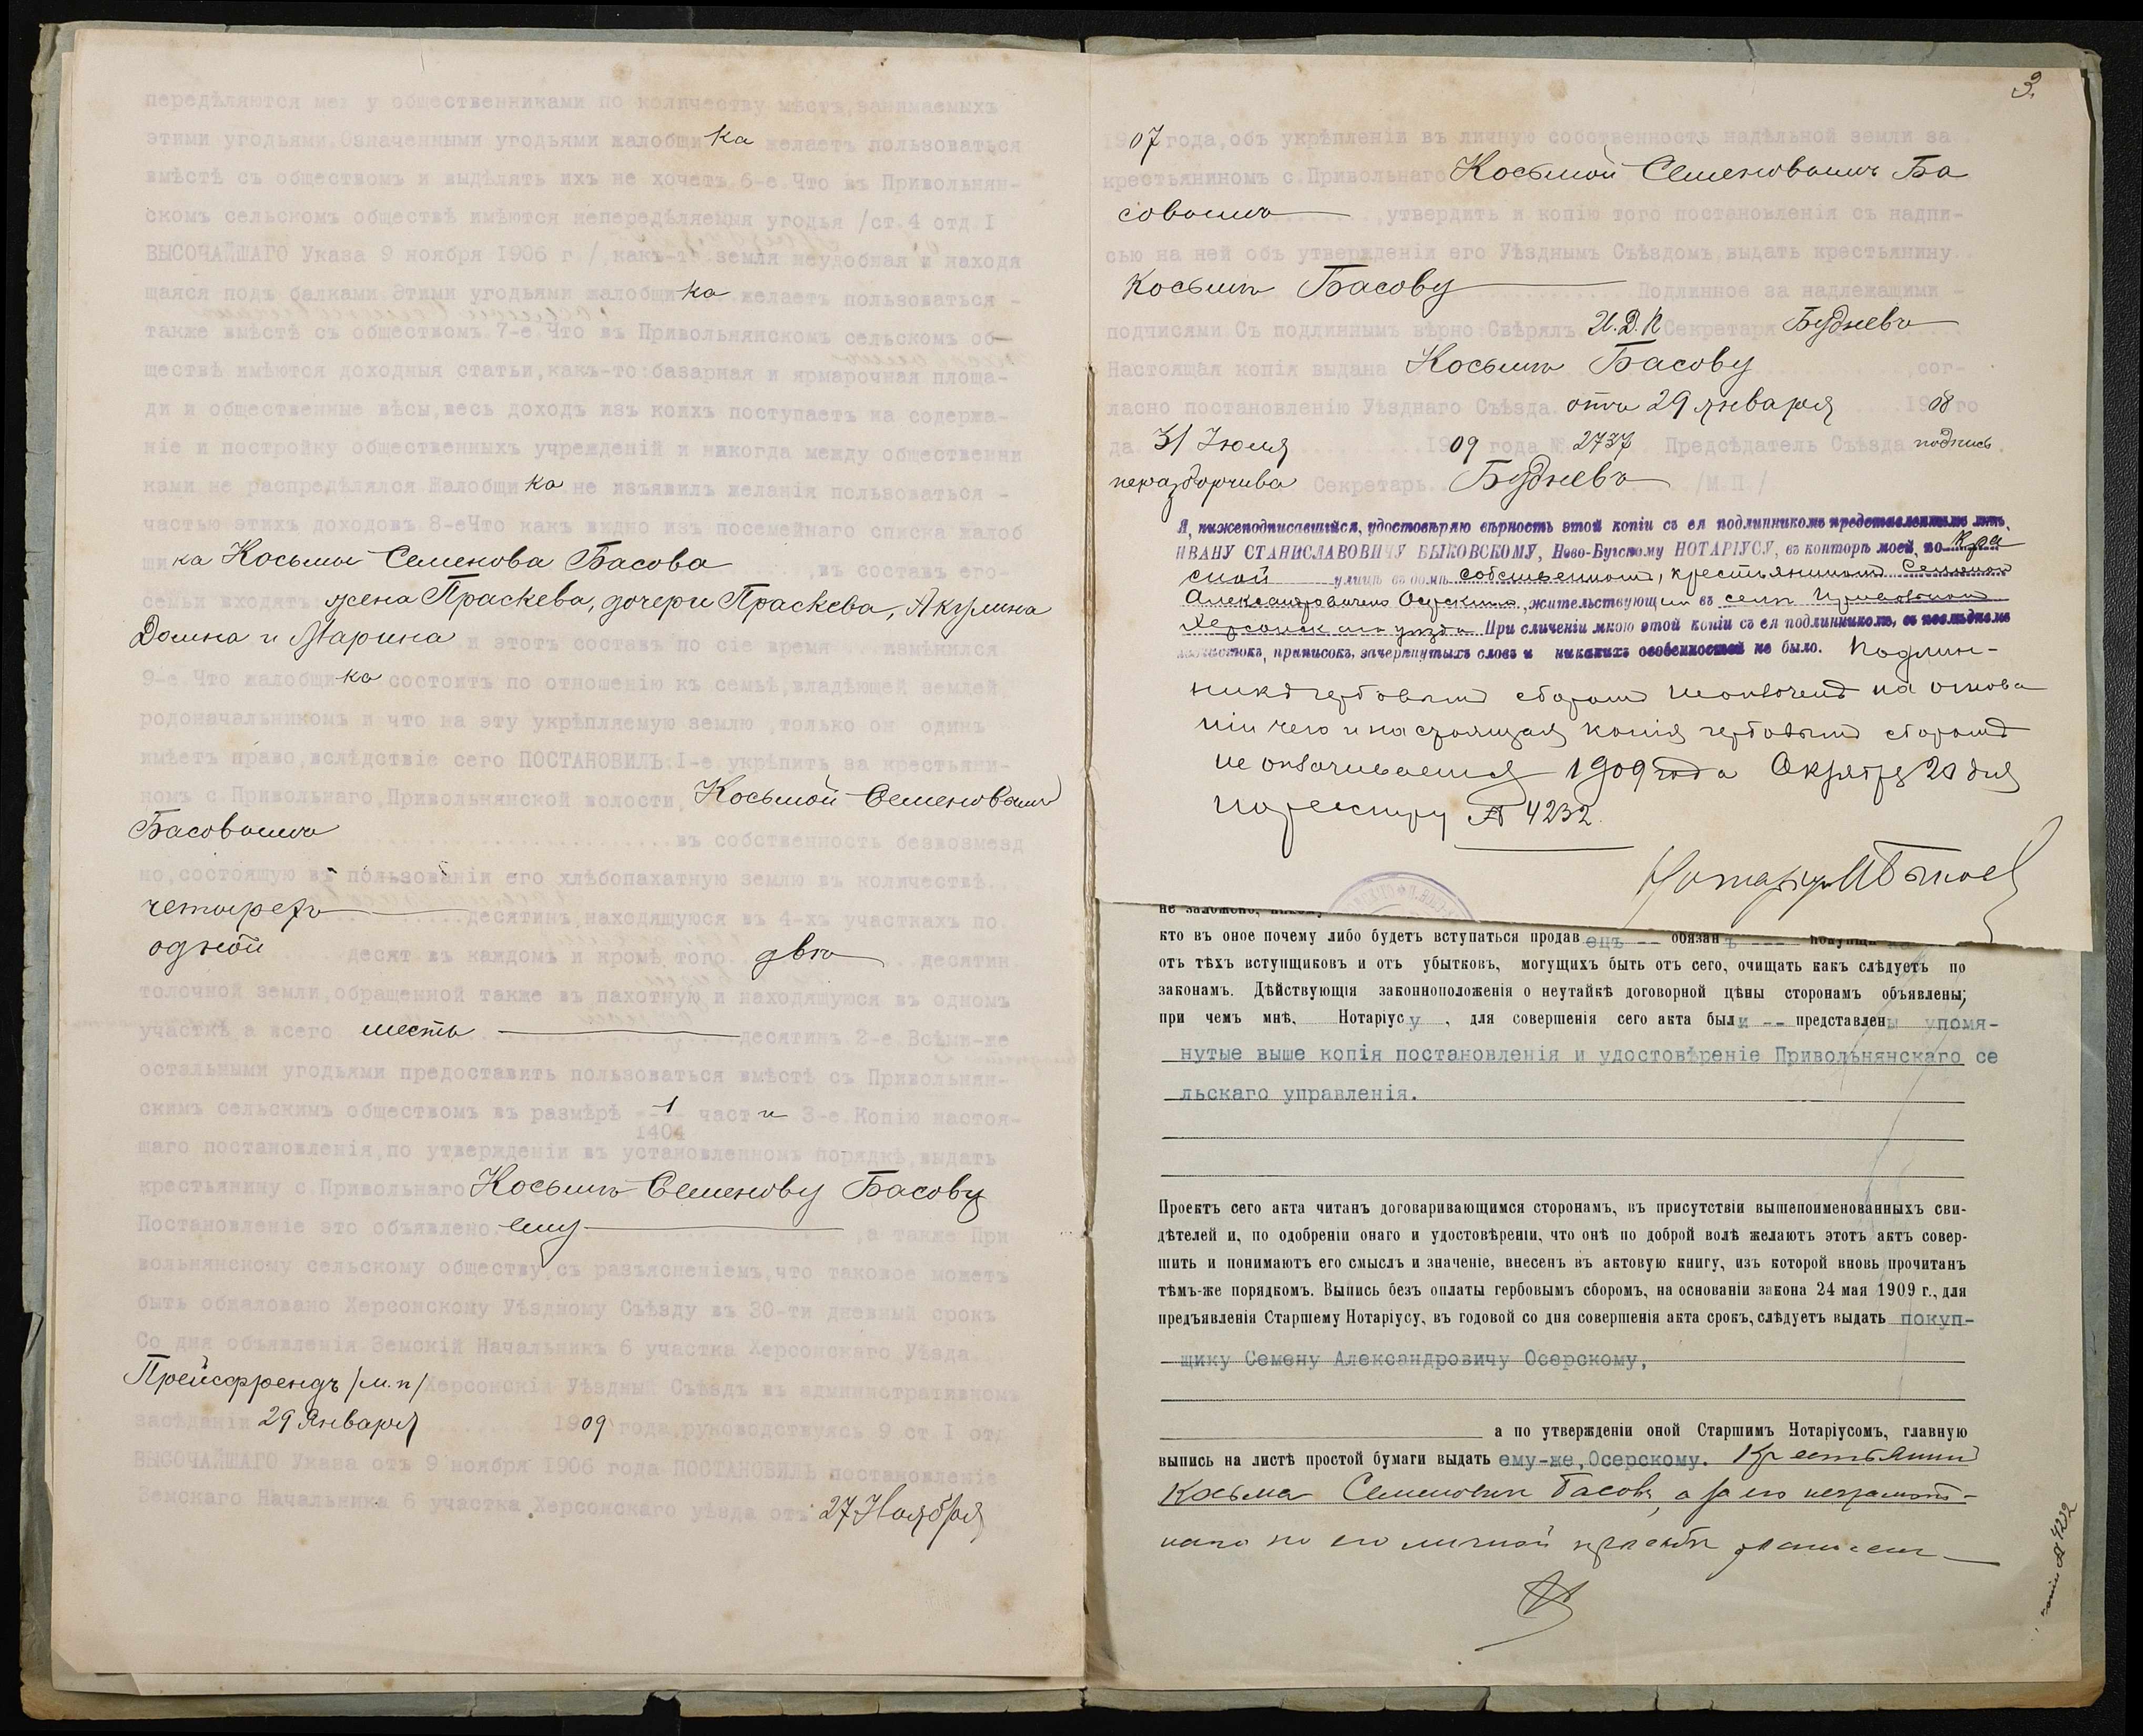 передѣляются меж у общественниками по количеству мѣстъ, занимаемыхъ
этими угодьями. Означенными угодьями жалобщика желаетъ пользоваться
вмѣстѣ съ обществомъ и выдѣлять ихъ не хочетъ 6-е. Что въ Привольнян-
скомъ сельскомъ обществѣ имѣются непередѣляемыя угодья /ст. 4 отд I
ВЫСОЧАЙШАГО Указа 9 ноября 1906 г /, какъ-то земля неудобная и находя
щаяся подъ балками. Этими угодьями жалобщика желаетъ пользоваться -
также вмѣстѣ съ обществомъ 7-е. Что въ Привольнянскомъ сельскомъ об-
ществѣ имѣются доходныя статьи, какъ-то: базарная и ярмарочная площа-
ди и общественные вѣсы, весь доходъ изъ коихъ поступаетъ на содержа-
ніе и постройку общественныхъ учрежденій и никогда между общественни
ками не распредѣлялся Жалобщика не изъявилъ желанія пользоваться -
частью этихъ доходовъ 8-е Что какъ видно изъ посемейнаго списка жалоб
щика Косьмы Семенова Басова , въ составъ его-
семьи входятъ: жена Праскева, дочери Праскева, Акулина
Домна и Марина и этотъ составъ по сіе время измѣнился
9-е. Что жалобщика состоитъ по отношенію къ семьѣ, владѣющей землей,
родоначальникомъ и что на эту укрѣпляемую землю , только он одинъ
имѣетъ право, вслѣдствіе сего ПОСТАНОВИЛЪ: I-е укрѣпить за крестьяни-
номъ с. Привольнаго, Привольнянской волости, Косьмой Семеновымъ
Басовымъ въ собственность безвозмезд
но, состоящую въ пользованіи его хлѣбопахатную землю въ количествѣ
четырехъ десятинъ, находящуюся въ 4-хъ участкахъ по
одной десят въ каждомъ и кромѣ того двѣ десятин
толочной земли, обращенной также въ пахотную и находящуюся въ одномъ
участкѣ а всего шесть десятинъ 2-е Всѣми-же
остальными угодьями предоставить пользоваться вмѣстѣ съ Привольнян-
скимъ сельскимъ обществомъ въ размѣрѣ 1/1404 части 3-е. Копію настоя-
щаго постановленія, по утвержденіи въ установленномъ порядкѣ, выдать
крестьянину с. Привольнаго Косьмѣ Семенову Басову
Постановленіе это объявлено ему , а также При
вольнянскому сельскому обществу, съ разъясненіемъ, что таковое можетъ
быть обжаловано Херсонскому Уѣздному Съѣзду въ 30-ти дневный срокъ
Со дня объявленія Земскій Начальникъ 6 участка Херсонскаго Уѣзда
Прейсфрендъ /м.п/ Херсонскій Уѣздный Съѣздъ въ административномъ
засѣданіи 29 Января 1909 года, руководствуясь 9 ст I отд
ВЫСОЧАЙШАГО Указа отъ 9 ноября 1906 года ПОСТАНОВИЛЪ постановленіе
Земскаго Начальника 6 участка Херсонскаго уѣзда отъ 27 Ноября
3.
1907 года, объ укрѣпленіи въ личную собственность надѣльной земли за
крестьяниномъ с. Привольнаго Косьмой Семеновымъ Ба
совымъ , утвердить и копію того постановленія съ надпи-
сью на ней объ утвержденіи его Уѣзднымъ Съѣздомъ, выдать крестьянину
Косьмѣ Басову Подлинное за надлежащими -
подписями Съ подлиннымъ вѣрно Свѣрялъ И.Д.П Секретаря Будневъ
Настоящая копія выдана Косьмѣ Басову , сог-
ласно постановленію Уѣзднаго Съѣзда отъ 29 января 1908 го
да 31 Іюля 1909 года № 2737 Предсѣдатель Съѣзда подпись
неразборчива Секретарь Будневъ /М.П./
Я, нижеподписавшійся, удостовѣряю вѣрность этой копіи съ ея подлинникомъ представленнымъ мнѣ,
ИВАНУ СТАНИСЛАВОВИЧУ БЫКОВСКОМУ, Ново-Бугскому НОТАРІУСУ, въ конторѣ моей, по Кра
сной улицѣ въ домѣ собственномъ, крестьяниномъ Семеномъ
Александровичемъ Осерскимъ, жительствующимъ въ селѣ Привольномъ
Херсонскаго уѣзда При сличеніи мною этой копіи съ ея подлинникомъ, въ послѣднемъ
подчистокъ, приписокъ, зачеркнутыхъ словъ и никакихъ особенностей не было. Подлин-
никъ гербовымъ сборомъ не оплоченъ на основа
ніи чего и настоящая копія гербовымъ сборомъ
не оплачивается 1909 года Октября 20 дня
По реестру № 4232.
Нотаріусъ И Быковскій
не заложено, никому
кто въ оное почему либо будетъ вступаться продавецъ -- обязанъ --- покупщи
отъ тѣхъ вступщиковъ и отъ убытковъ, могущихъ быть отъ сего, очищать какъ слѣдуетъ по
законамъ. Дѣйствующія законноположенія о неутайкѣ договорной цѣны сторонамъ объявлены;
при чемъ мнѣ, Нотаріусу , для совершенія сего акта были -- представлены упомя-
нутые выше копія постановленія и удостовѣреніе Привольнянскаго се
льскаго управленія.
Проектъ сего акта читанъ договаривающимся сторонамъ, въ присутствіи вышепоименованныхъ сви-
дѣтелей и, по одобреніи онаго и удостовѣреніи, что онѣ по доброй волѣ желаютъ этотъ актъ совер-
шить и понимаютъ его смыслъ и значеніе, внесенъ въ актовую книгу, изъ которой вновь прочитанъ
тѣмъ-же порядкомъ. Выпись безъ оплаты гербовымъ сборомъ, на основаніи закона 24 мая 1909 г., для
предъявленія Старшему Нотаріусу, въ годовой со дня совершенія акта срокъ, слѣдуетъ выдать покуп-
щику Семену Александровичу Осерскому,
а по утвержденіи оной Старшимъ Нотаріусомъ, главную
выпись на листѣ простой бумаги выдать ему-же, Осерскому. Крестьянинъ
Косьма Семеновичъ Басовъ, а за его неграмот-
наго по его личной просьбѣ
№ 4232